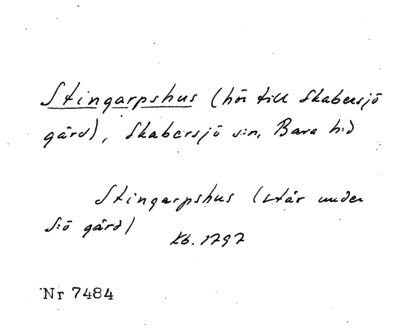 Stingarpshus (hör till Skabersjö
gård), Skabersjö s:n, Bara hd
Stingarpshus (står under
S:ö gård)
Kb. 1797
Nr 7484